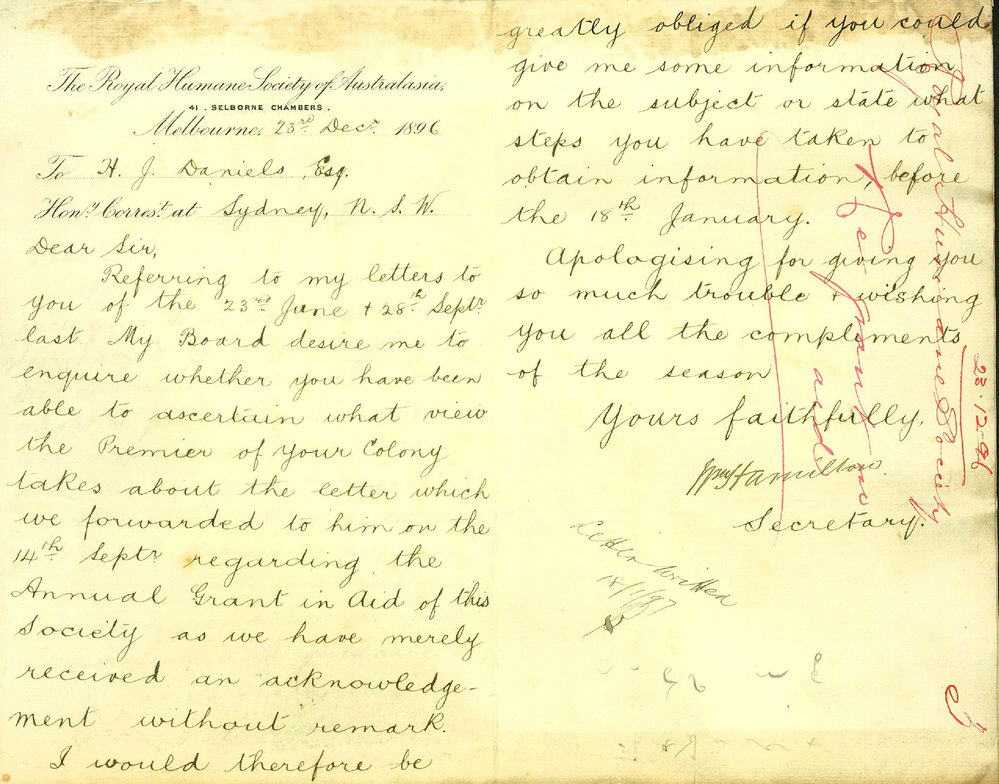 The Royal Humane Society of Australasia,
41. SELBORNE CHAMBERS.
Melbourne, 23rd Decr 1896
To H. J. Daniels, Esq.
Hony. Correst. at Sydney, N. S. W.
Dear Sir,
Referring to my letters to
you of the 23rd June & 28th Septr
last. My Board desire me to
enquire whether you have been
able to ascertain what view
the Premier of your Colony
takes about the letter which
we forwarded to him on the
14th Septr regarding the
Annual Grant in Aid of this
Society as we have merely
received an acknowledge-
ment without remark.
I would therefore be
greatly obliged if you could
give me some information
on the subject or state what
steps you have taken to
obtain information, before
the 18th January.
Apologising for giving you
so much trouble & wishing
you all the complements
of the season
Yours faithfully,
Wm Hamilton
Secretary.
Letter written
18/1/97
Royal Humane Society
23.12.96
Re grant in
aid